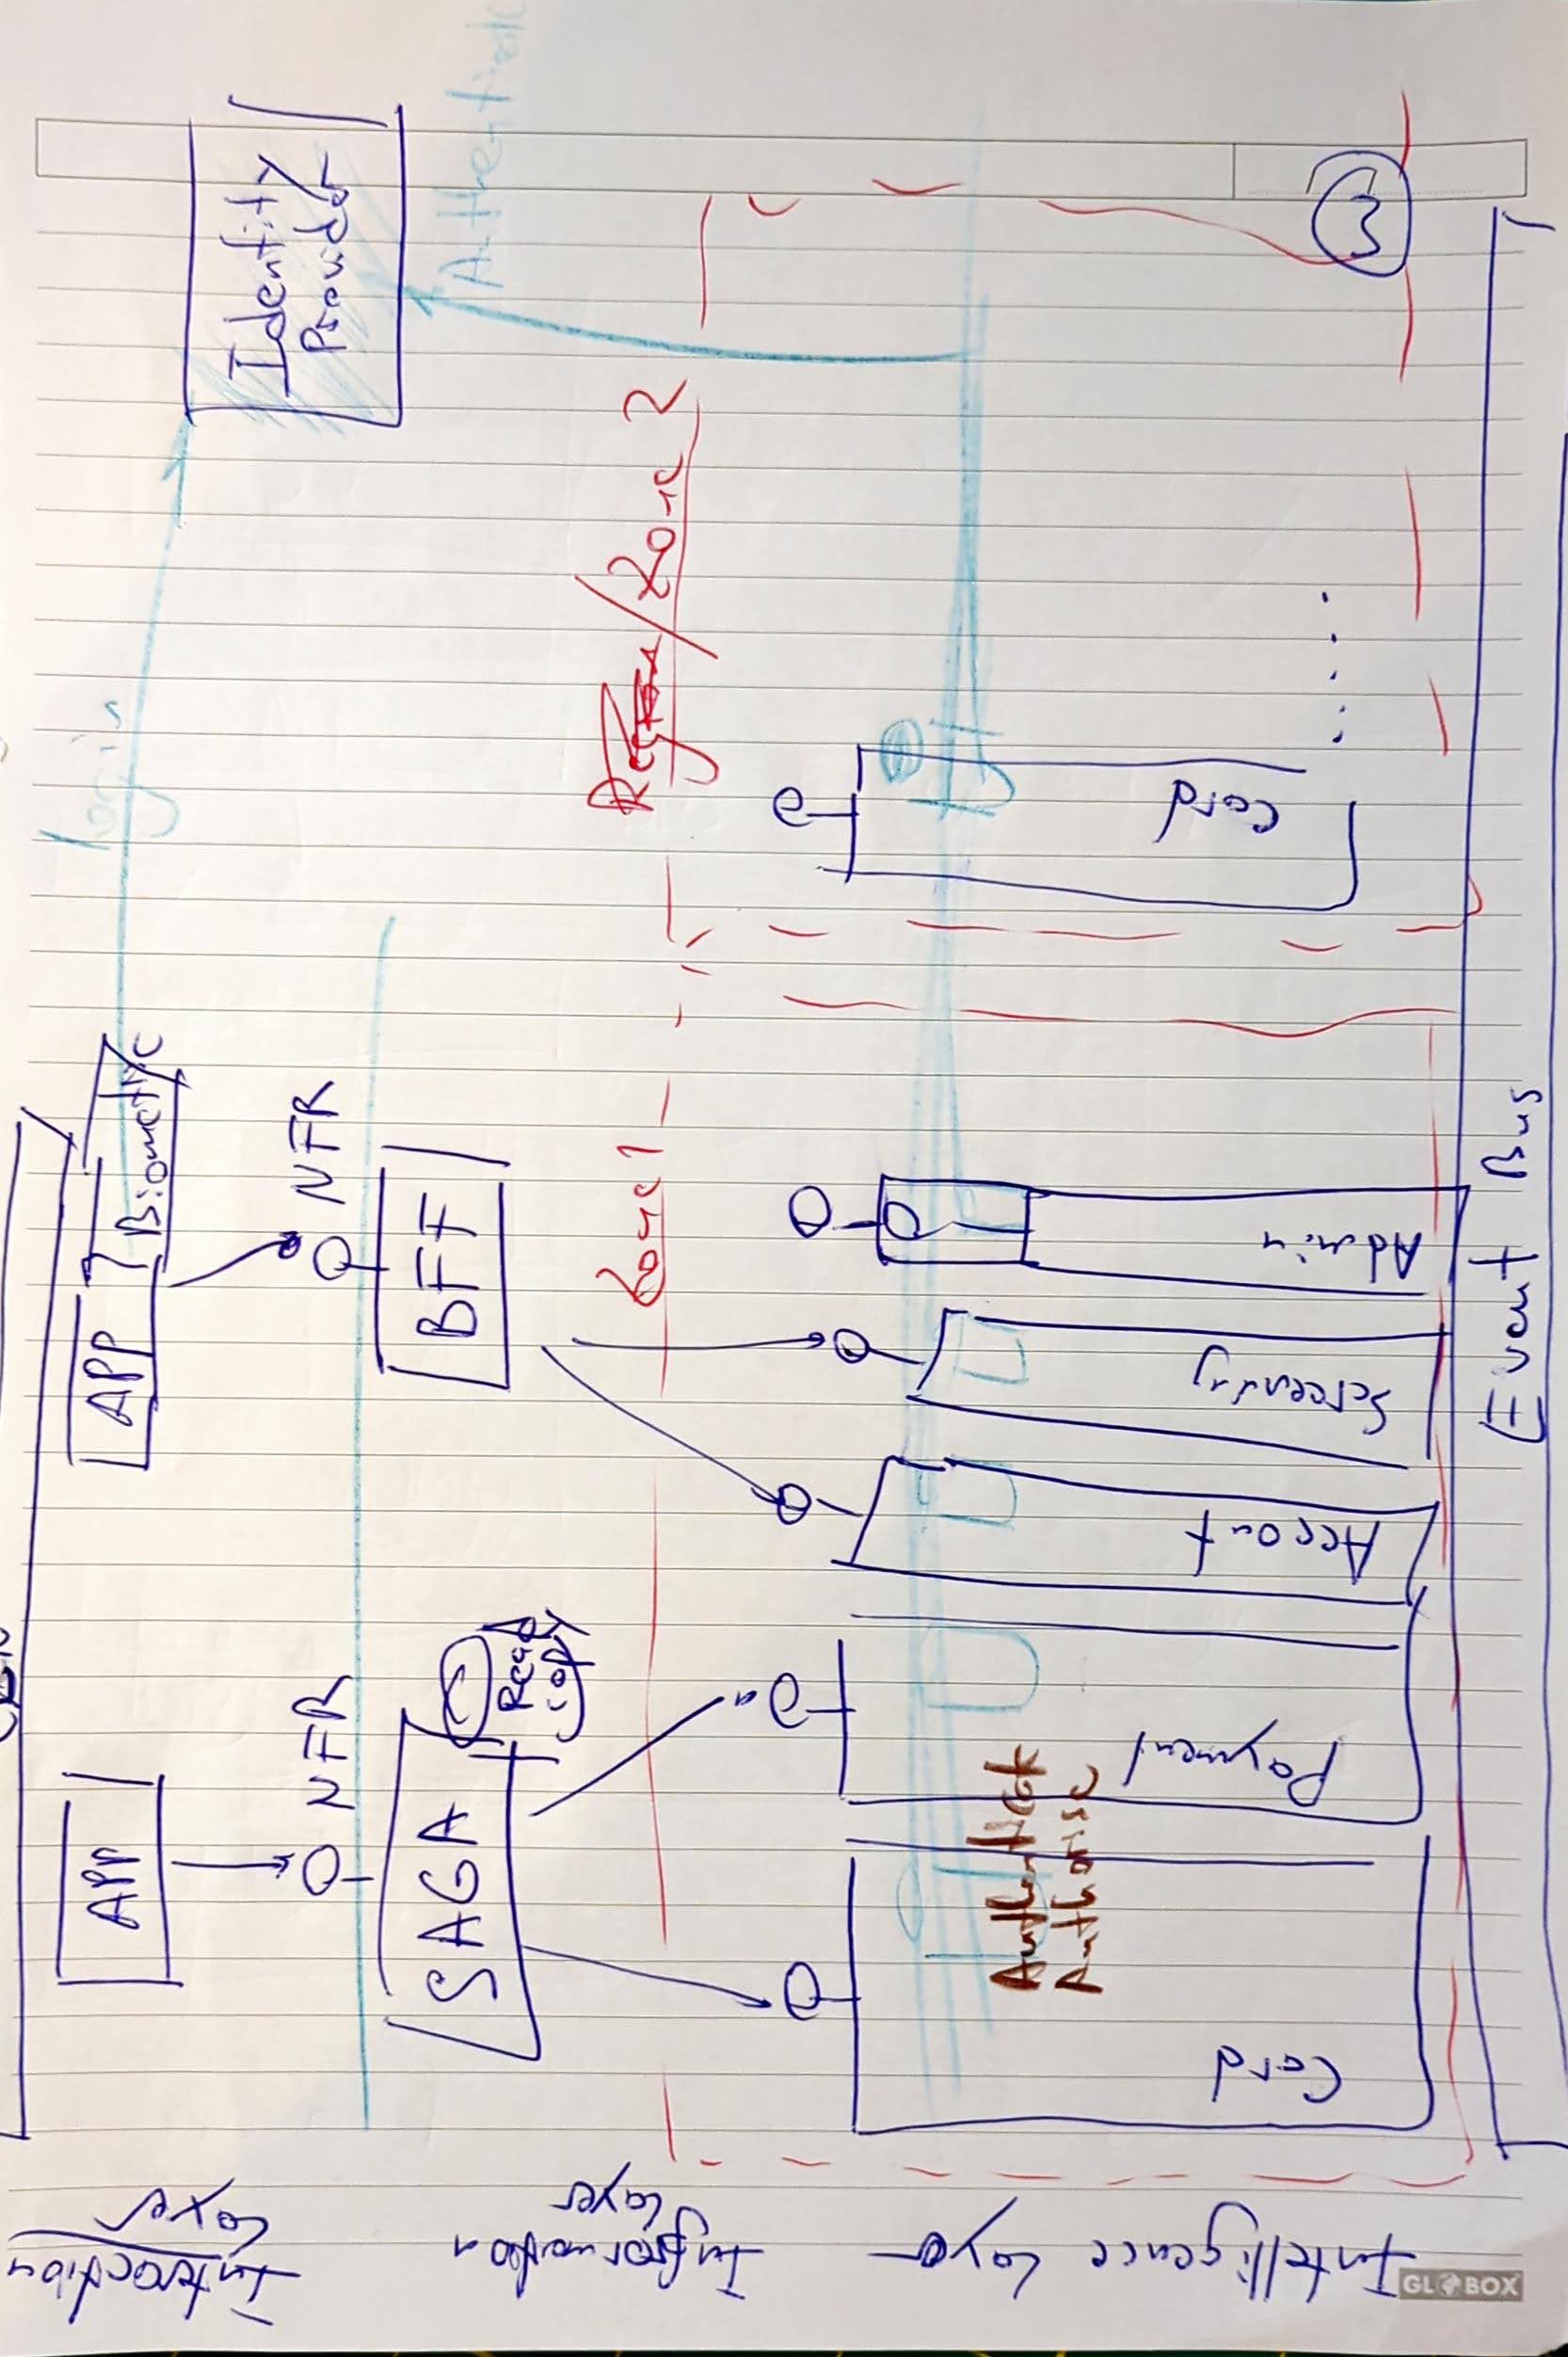 Interaction
Layer
APP
APP
Biometric
login
NFR
NFR
Identity
Provider
Information
Layer
SAGA
Read
copy
BFF
Authenticate
Zone 1
Region/Zone 2
Intelligence Layer
Authenticate
Authorise
Card
Payment
Account
Screening
Admin
Card
.....
Event Bus
GLOBOX